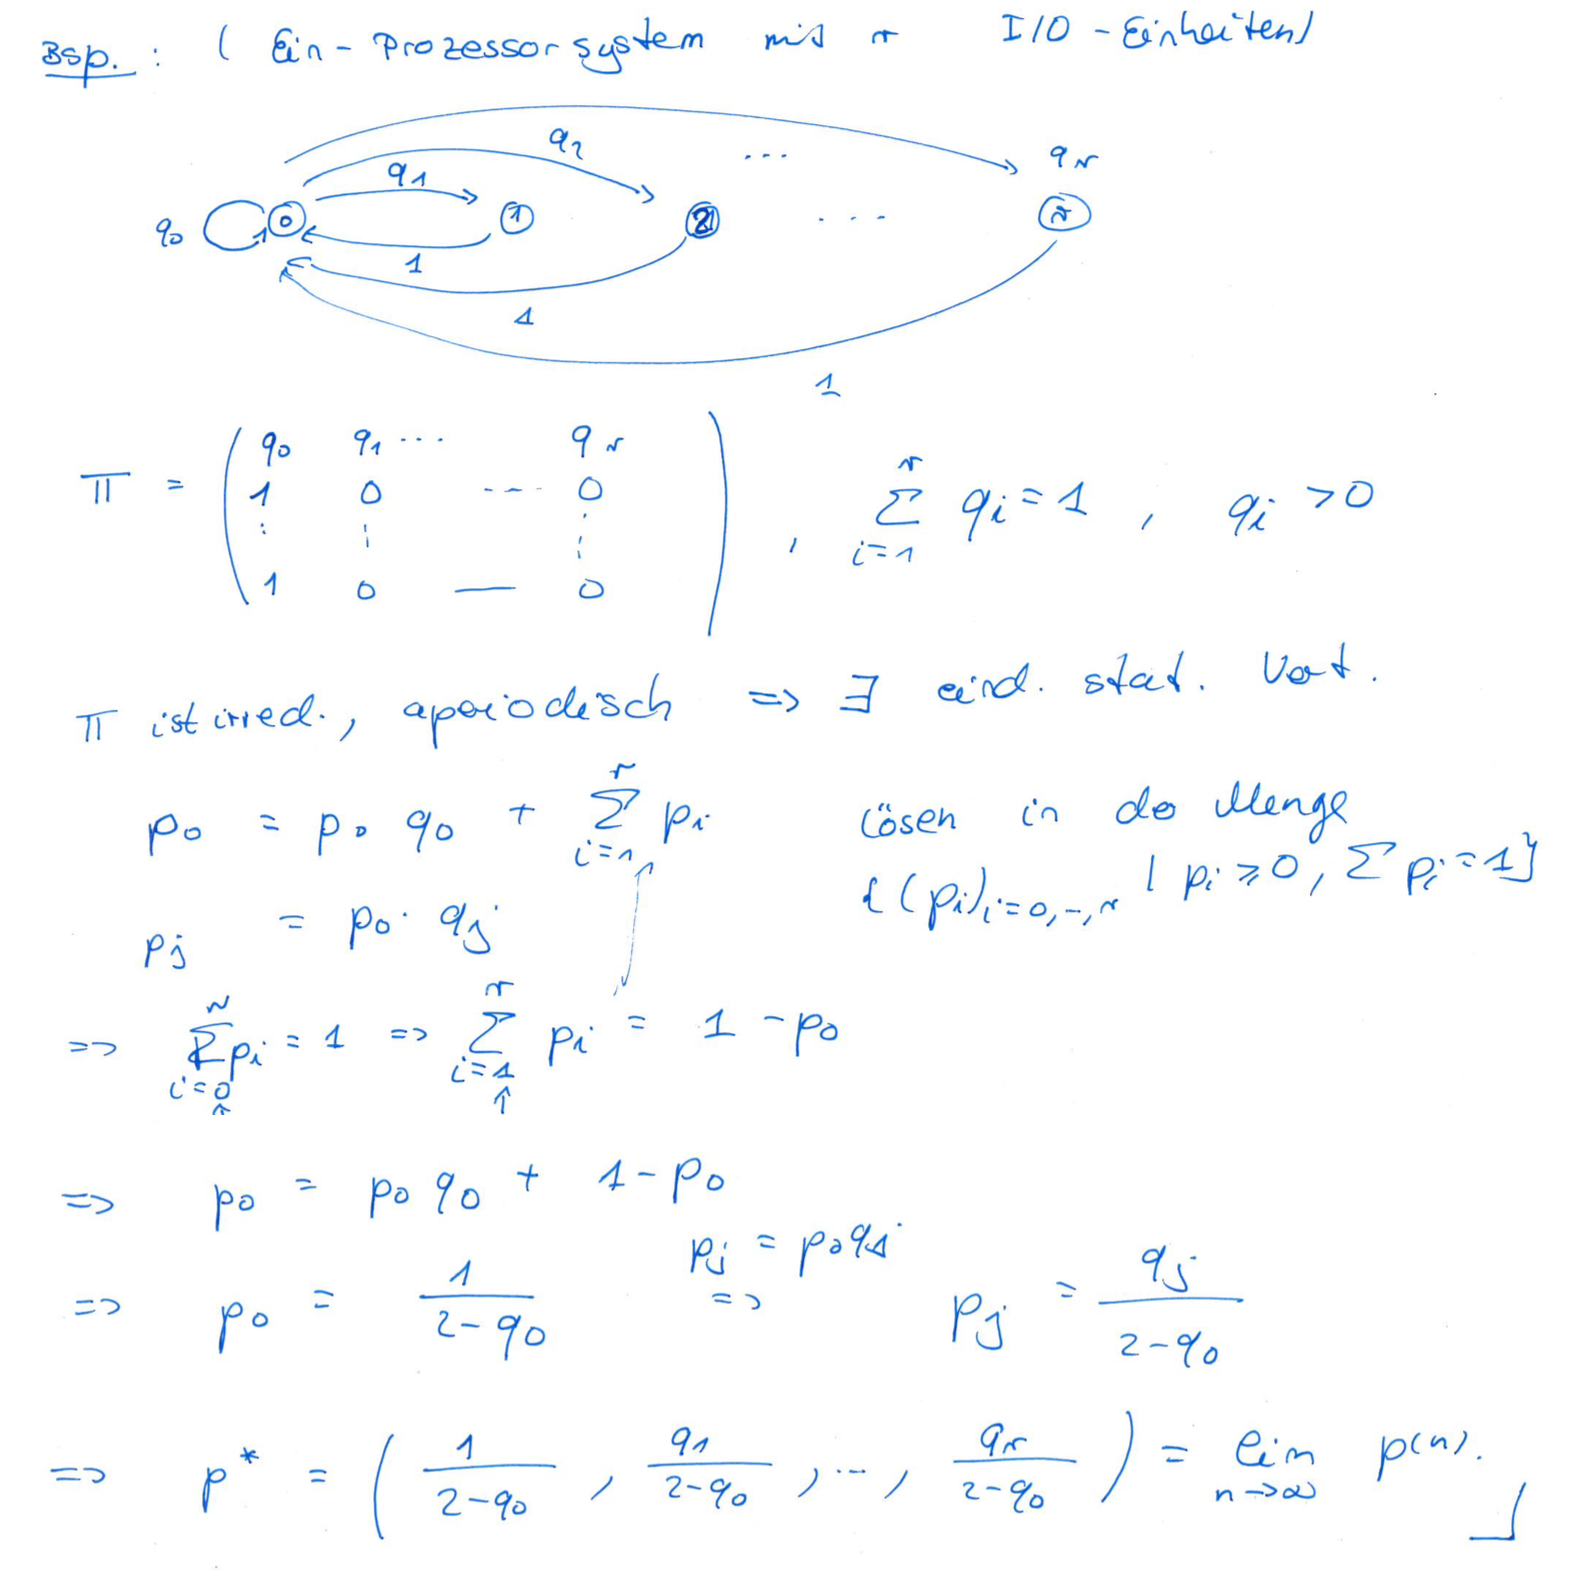 Bsp. : ( Ein-Prozessorsystem mit r I/O-Einheiten)
q₂ ... qᵣ
q₁
q₀ 0 1 2 ... r
1
1
1
π = ( q₀ q₁ ... qᵣ
1 0 --- 0
⋮ ⋮ ⋮
1 0 — 0 ) , Σ_{i=1}^{r} qᵢ = 1 , qᵢ > 0
π ist irred., aperiodisch => ∃ eind. stat. Vert.
p₀ = p₀ q₀ + Σ_{i=1}^{r} pᵢ lösen in der Menge
{ (pᵢ)_{i=0,-,r} | pᵢ ≥ 0, Σ pᵢ = 1 }
pⱼ = p₀ · qⱼ
=> Σ_{i=0}^{r} pᵢ = 1 => Σ_{i=1}^{r} pᵢ = 1 - p₀
=> p₀ = p₀ q₀ + 1 - p₀
=> p₀ = 1/(2-q₀) pⱼ = p₀qⱼ => pⱼ = qⱼ/(2-q₀)
=> p* = ( 1/(2-q₀) , q₁/(2-q₀) , ... , qᵣ/(2-q₀) ) = lim_{n→∞} p(n).